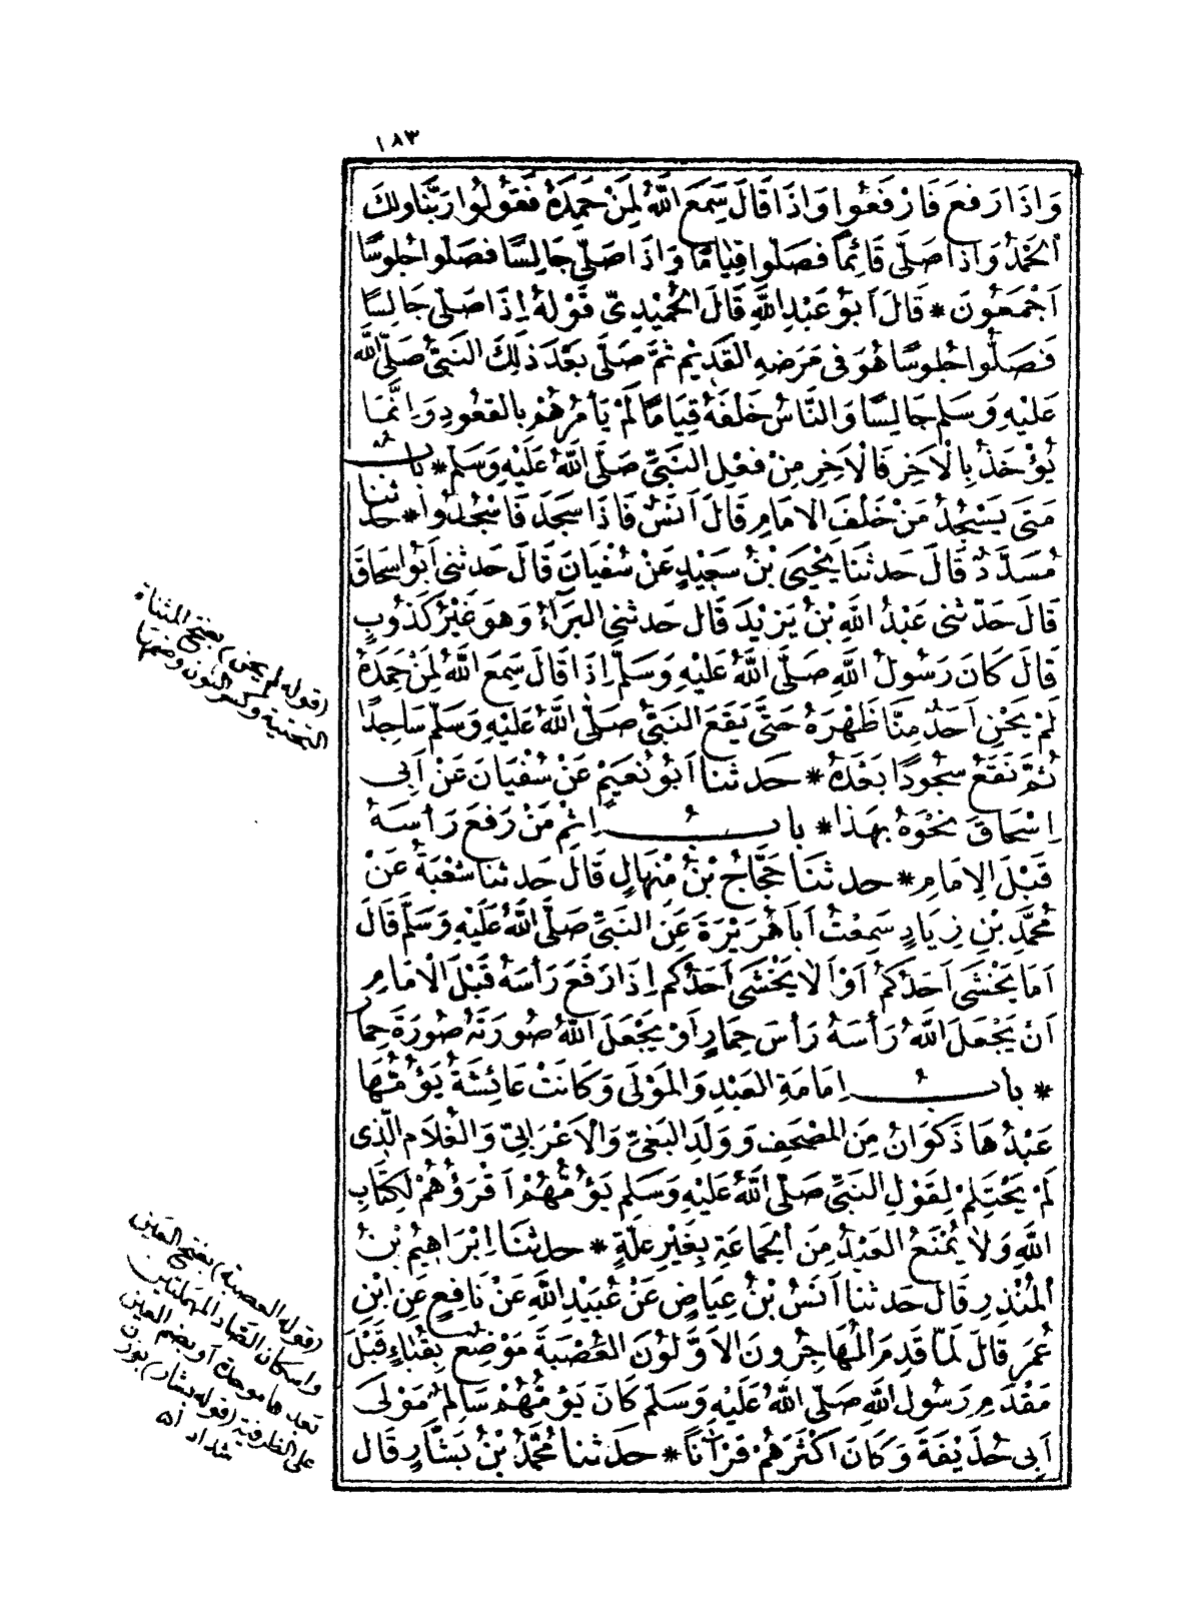 ١٨٣
وَاِذَا رَفَعَ فَارْفَعُوا وَاِذَا قَالَ سَمِعَ اللّٰهُ لِمَنْ حَمِدَهُ فَقُولُوا رَبَّنَا وَلَكَ
الْحَمْدُ وَاِذَا صَلَّى قَائِمًا فَصَلُّوا قِيَامًا وَاِذَا صَلَّى جَالِسًا فَصَلُّوا جُلُوسًا
اَجْمَعُونَ * قَالَ اَبُو عَبْدِ اللّٰهِ قَالَ الْحُمَيْدِىّ قَوْلُهُ اِذَا صَلَّى جَالِسًا
فَصَلُّوا جُلُوسًا هُوَ فِى مَرَضِهِ الْقَدِيْمِ ثُمَّ صَلَّى بَعْدَ ذٰلِكَ النَّبِىُّ صَلَّى اللّٰهُ
عَلَيْهِ وَسَلَّمَ جَالِسًا وَالنَّاسُ خَلْفَهُ قِيَامًا لَمْ يَأْمُرْهُمْ بِالْقُعُودِ وَاِنَّمَا
يُؤْخَذُ بِالْاٰخِرِ فَالْاٰخِرِ مِنْ فِعْلِ النَّبِىِّ صَلَّى اللّٰهُ عَلَيْهِ وَسَلَّمَ * بَابُ
مَتَى يَسْجُدُ مَنْ خَلْفَ الْاِمَامِ قَالَ اَنَسٌ فَاِذَا سَجَدَ فَاسْجُدُوا * حدثنا
مُسَدَّدٌ قَالَ حَدثنَا يَحْيَى بْنُ سَعِيْدٍ عَنْ سُفْيَانَ قَالَ حَدثنى اَبُو اِسْحَاقَ
قَالَ حَدّثنى عَبْدُ اللّٰهِ بْنُ يَزِيْدَ قَالَ حَدثنى الْبَرَاءُ وَهُوَ غَيْرُ كَذُوبٍ
قَالَ كَانَ رَسُولُ اللّٰهِ صَلَّى اللّٰهُ عَلَيْهِ وَسَلَّمَ اِذَا قَالَ سَمِعَ اللّٰهُ لِمَنْ حَمِدَهُ
لَمْ يَحْنِ اَحَدٌ مِنَّا ظَهْرَهُ حَتَّى يَقَعَ النَّبِىُّ صَلَّى اللّٰهُ عَلَيْهِ وَسَلَّمَ سَاجِدًا
ثُمَّ نَقَعُ سُجُودًا بَعْدَهُ * حَدثنا اَبُو نُعَيْمٍ عَنْ سُفْيَانَ عَنْ اَبِى
اِسْحَاقَ نَحْوَهُ بِهَذَا * بابُ اِثْمِ مَنْ رَفَعَ رَأْسَهُ
قَبْلَ الْاِمَامِ * حدثنَا حَجَّاجُ بْنُ مِنْهَالٍ قَالَ حَدثنا شُعْبَةُ عَنْ
مُحَمَّدِ بْنِ زِيَادٍ سَمِعْتُ اَبَا هُرَيْرَةَ عَنِ النَّبِىِّ صَلَّى اللّٰهُ عَلَيْهِ وَسَلَّمَ قَالَ
اَمَا يَخْشَى اَحَدُكُمْ اَوْ اَلَا يَخْشَى اَحَدُكُمْ اِذَا رَفَعَ رَأْسَهُ قَبْلَ الْاِمَامِ
اَنْ يَجْعَلَ اللّٰهُ رَأْسَهُ رَأْسَ حِمَارٍ اَوْ يَجْعَلَ اللّٰهُ صُورَتَهُ صُورَةَ حِمَارٍ
* بابُ اِمَامَةِ الْعَبْدِ وَالْمَوْلَى وَكَانَتْ عَائِشَةُ يَؤُمُّهَا
عَبْدُهَا ذَكْوَانُ مِنَ الْمُصْحَفِ وَوَلَدِ الْبَغِىِّ وَالْاَعْرَابِىِّ وَالْغُلَامِ الَّذِى
لَمْ يَحْتَلِمْ لِقَوْلِ النَّبِىِّ صَلَّى اللّٰهُ عَلَيْهِ وَسَلَّمَ يَؤُمُّهُمْ اَقْرَؤُهُمْ لِكِتَابِ
اللّٰهِ وَلَا يُمْنَعُ الْعَبْدُ مِنَ الْجَمَاعَةِ بِغَيْرِ عِلَّةٍ * حدثنَا اِبْرَاهِيمُ بْنُ
الْمُنْذِرِ قَالَ حَدثنا اَنَسُ بْنُ عِيَاضٍ عَنْ عُبَيْدِ اللّٰهِ عَنْ نَافِعٍ عَنِ ابْنِ
عُمَرَ قَالَ لَمَّا قَدِمَ الْمُهَاجِرُونَ الْاَوَّلُونَ الْعُصْبَةَ مَوْضِعٌ بِقُبَاءٍ قَبْلَ
مَقْدَمِ رَسُولِ اللّٰهِ صَلَّى اللّٰهُ عَلَيْهِ وَسَلَّمَ كَانَ يَؤُمُّهُمْ سَالِمٌ مَوْلَى
اَبِى حُذَيْفَةَ وَكَانَ اَكْثَرَهُمْ قُرْآنًا * حدثنا مُحَمَّدُ بْنُ بَشَّارٍ قَالَ
(قوله لم يحن) بفتح المثناة
التحتية وكسر النون وضمها
(قوله العصبة) بفتح العين
واسكان الصاد المهملتين
بعدها موحدة او بضم العين
على الظرفية (قوله بشار) بوزن
شداد اه